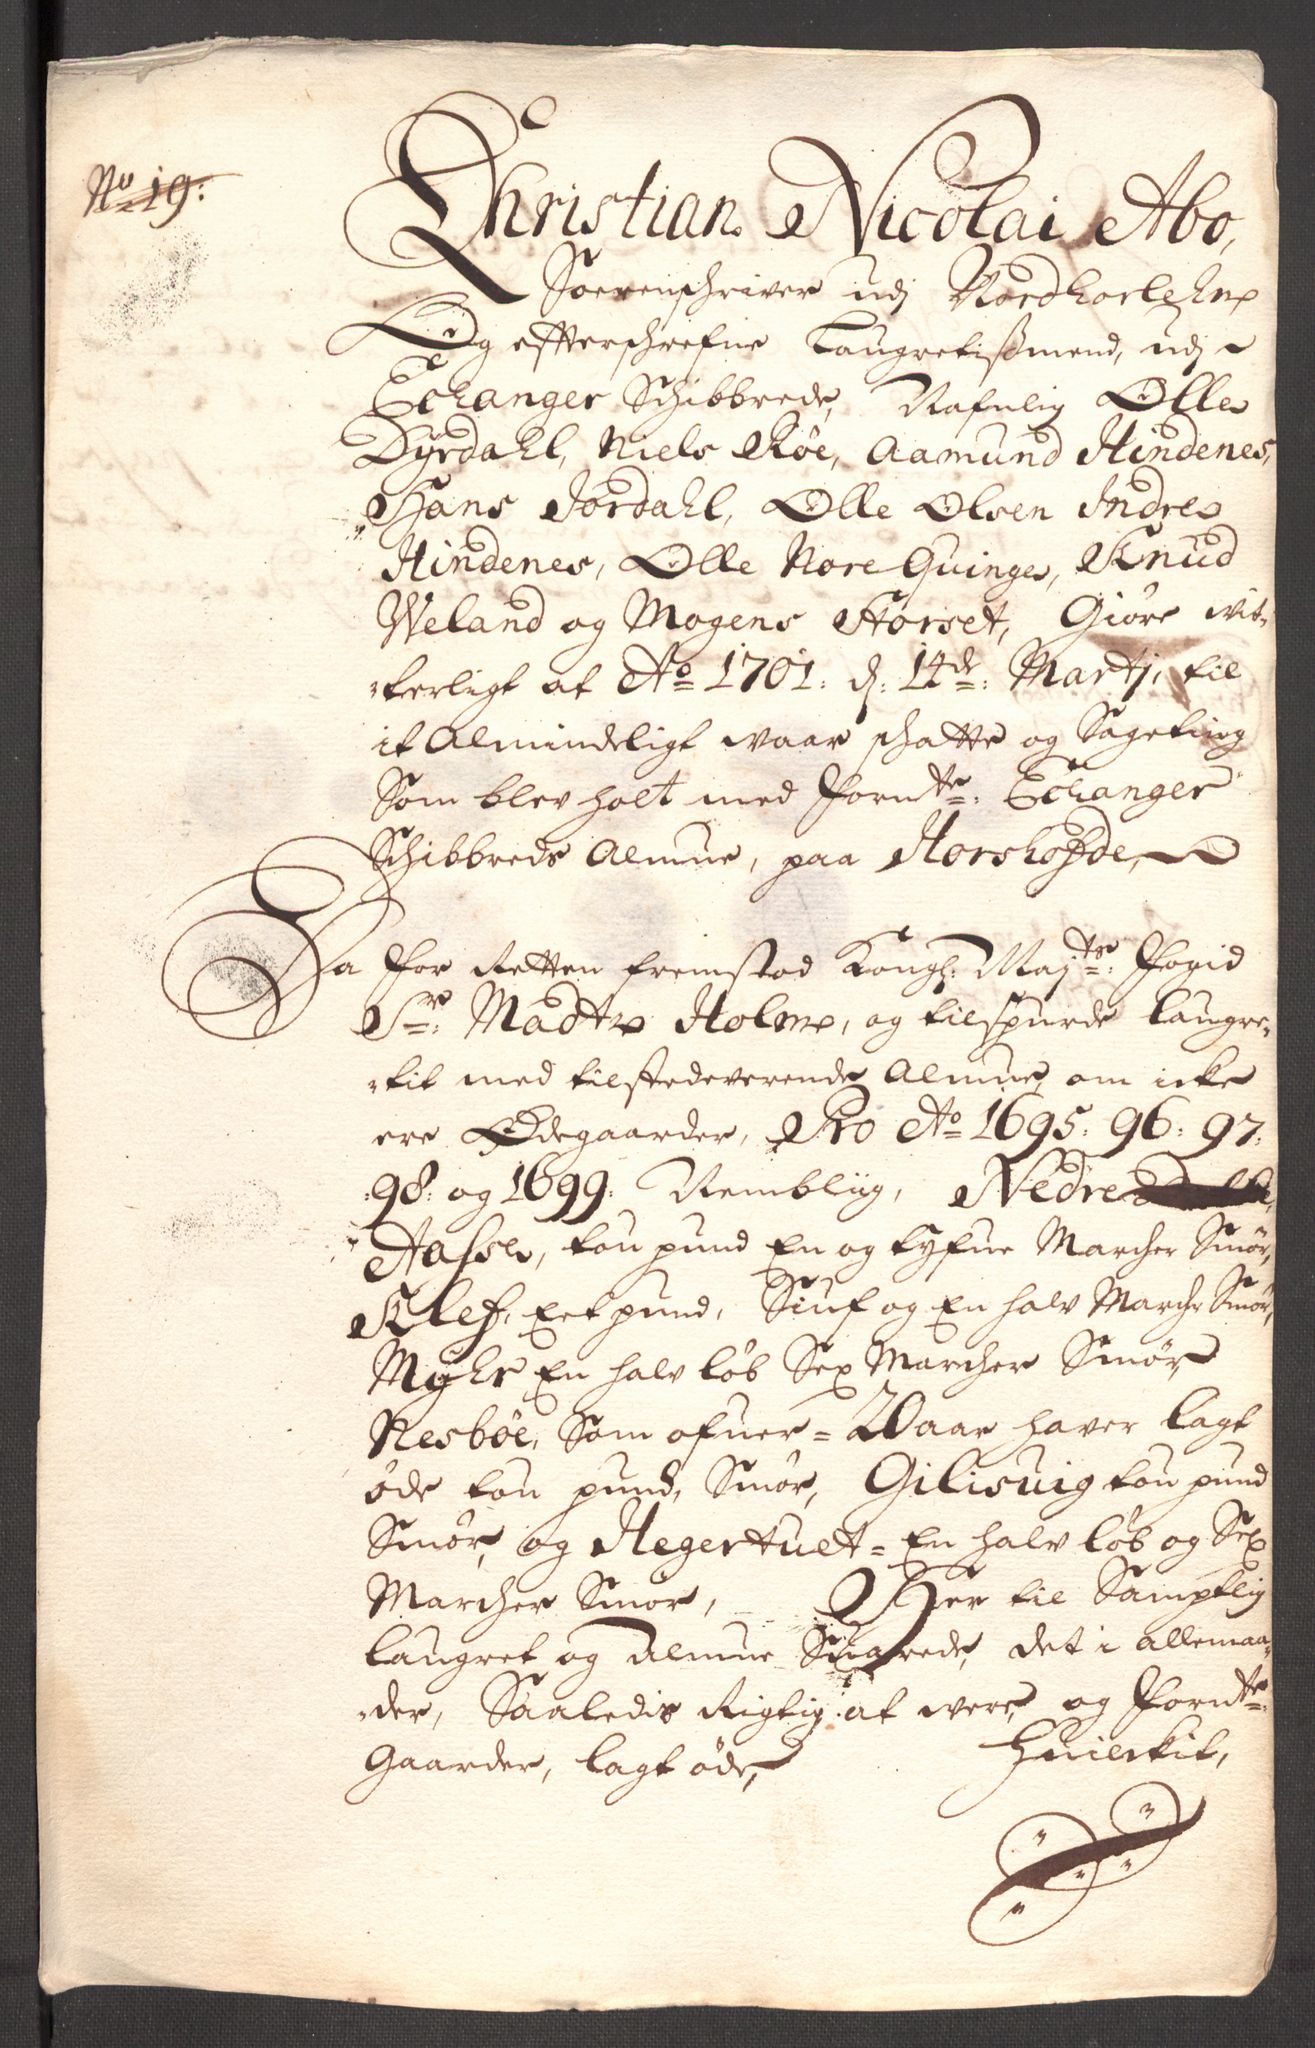 No 19:
Christian Nicolai Abo,
Soerenschriver udj Nordhorlehn
Og effterschrefne Laugretißmend, udj
Echanger Schibbrede, Nafnlig Olle
Dyrdahl, Niels Röe, Aamund Hindenes,
Hans Jordahl, Olle Olsen Indre
Hindenes, Olle Nore Quinge, Knud
Weland og Mogens Storset, Giöre wit-
terligt at Ao 1701: d: 14de: Martj, til
it Almindeligt waar schatte og Sageting
Som blev holt med Fornte: Echanger
Schibbreds Almue, paa Horshofde,
Da for Retten fremstod Kongl: Majts: Fogid
Sr: Madtz Holm, og tilspurde Laugre-
tit med tilstedeverende Almue, om icke
ere Ödegaarder, Pro Ao 1695: 96: 97:
:98: og 1699: Nembliig, Nedre
Aasse, tou pund En og tyfue Marcher Smör,
Klef, Eet pund, Siuf og En halv March Smör,
Myhr En halv löb Sex Marcher Smör,
Nesböe, Som ofuer 20 aar haver lagt
öde tou pund, Smör, Gilisuig tou pund
Smör, og Hegertuet En halv löb og Sex
Marcher Smör, Her til Samptlig
Laugret og Almue Suarede, det i allemaa-
der, Saaledis Rigtig at were, og Fornte:
Gaarder, lagt öde, Huilckit,